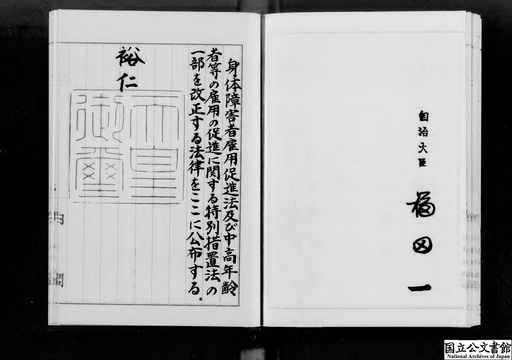 自治大臣
福田一
身体障害者雇用促進法及び中高年齢
者等の雇用の促進に関する特別措置法の
一部を改正する法律をここに公布する。
裕仁
天皇
御璽
国立公文書館
National Archives of Japan